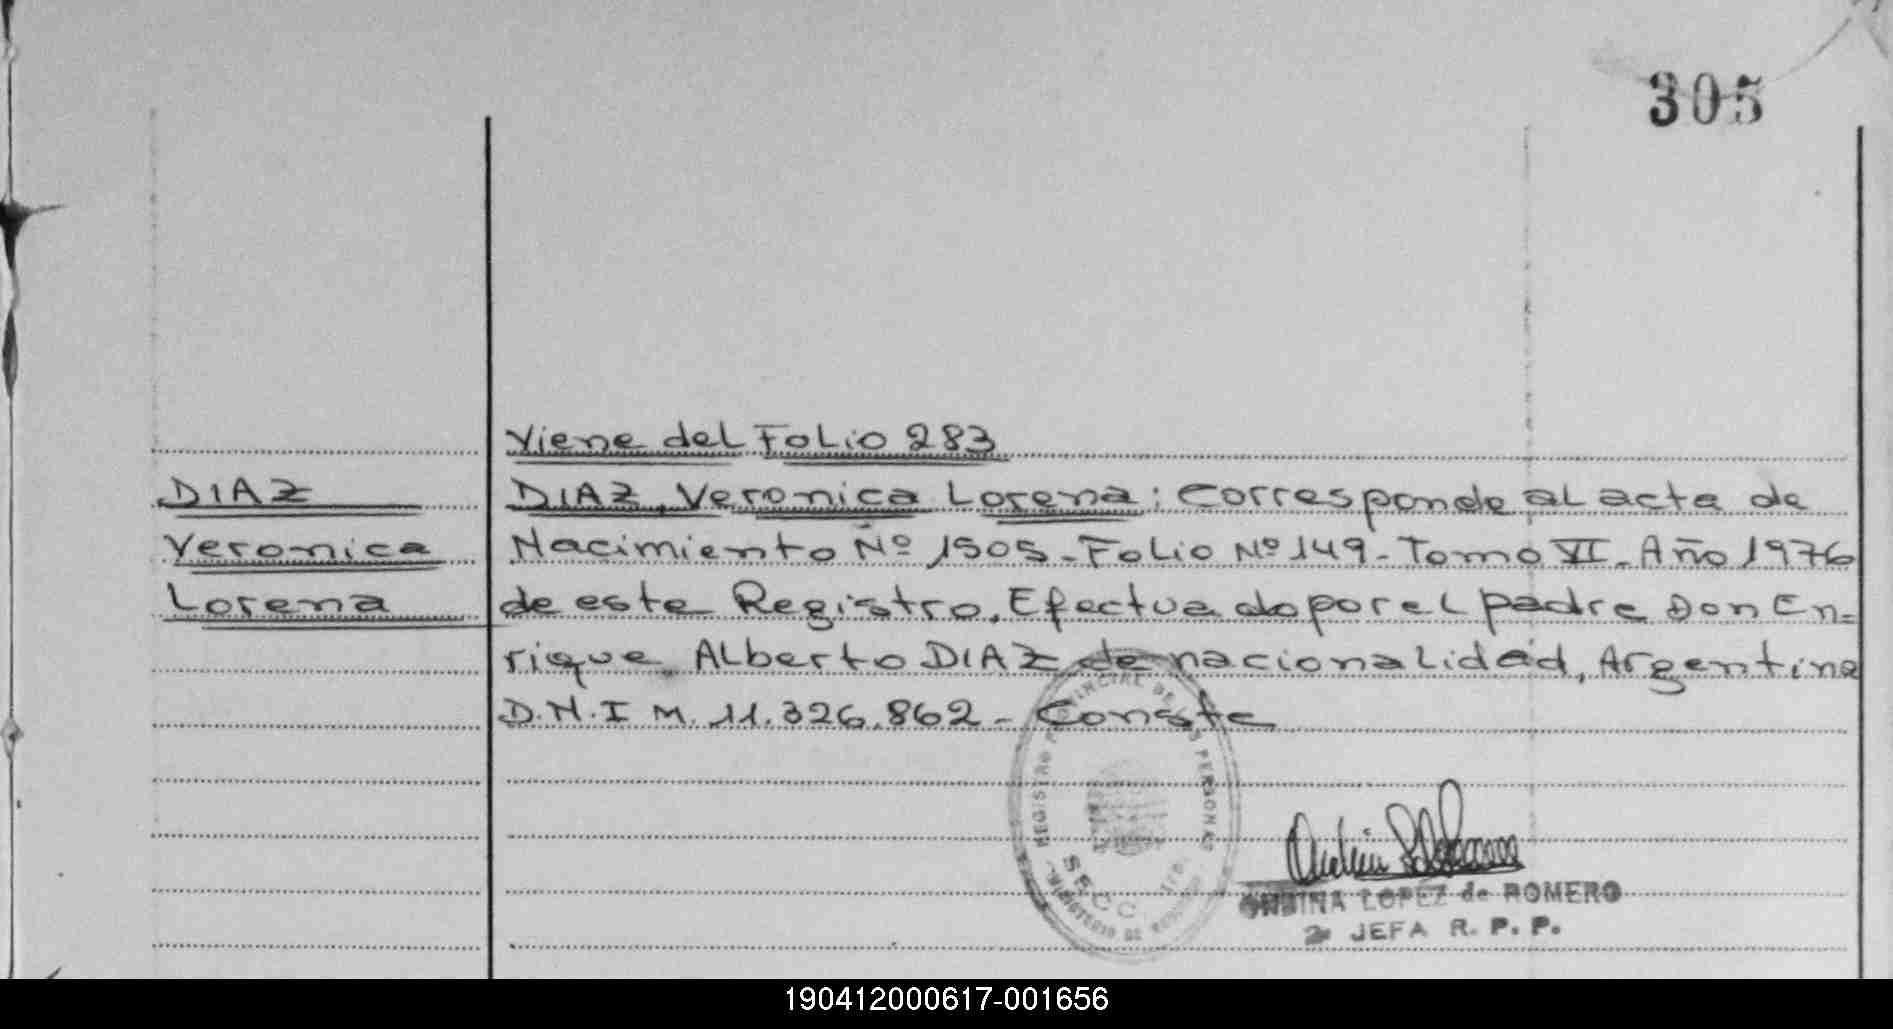 305
Viene del Folio 283
DIAZ
Veronica
Lorena
DIAZ, Veronica Lorena: Corresponde al acta de
Nacimiento Nº 1505-Folio Nº 149-Tomo VI-Año 1976
de este Registro. Efectuado por el padre Don En-
rique Alberto DIAZ de nacionalidad, Argentina
D.N.I M. 11.326.862 - Conste
REGISTRO PROVINCIAL DE LAS PERSONAS
SECC
MINISTERIO DE
LOPEZ de ROMERO
2ª JEFA R. P. P.
190412000617-001656